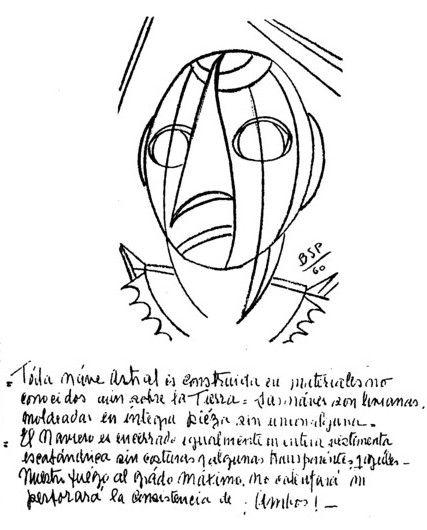 BSP
60
= Toda nave Astral es construida en materiales no
conocidos aun sobre la Tierra = Las naves son livianas,
moldeadas en integra pieza sin union alguna. -
= El Naviero es encerrado igualmente en entera vestimenta
escafándrica sin costuras y algunas transparentes,
Nuestro fuego al grado máximo, no calentará ni
perforará la consistencia de ¡Ambos! -